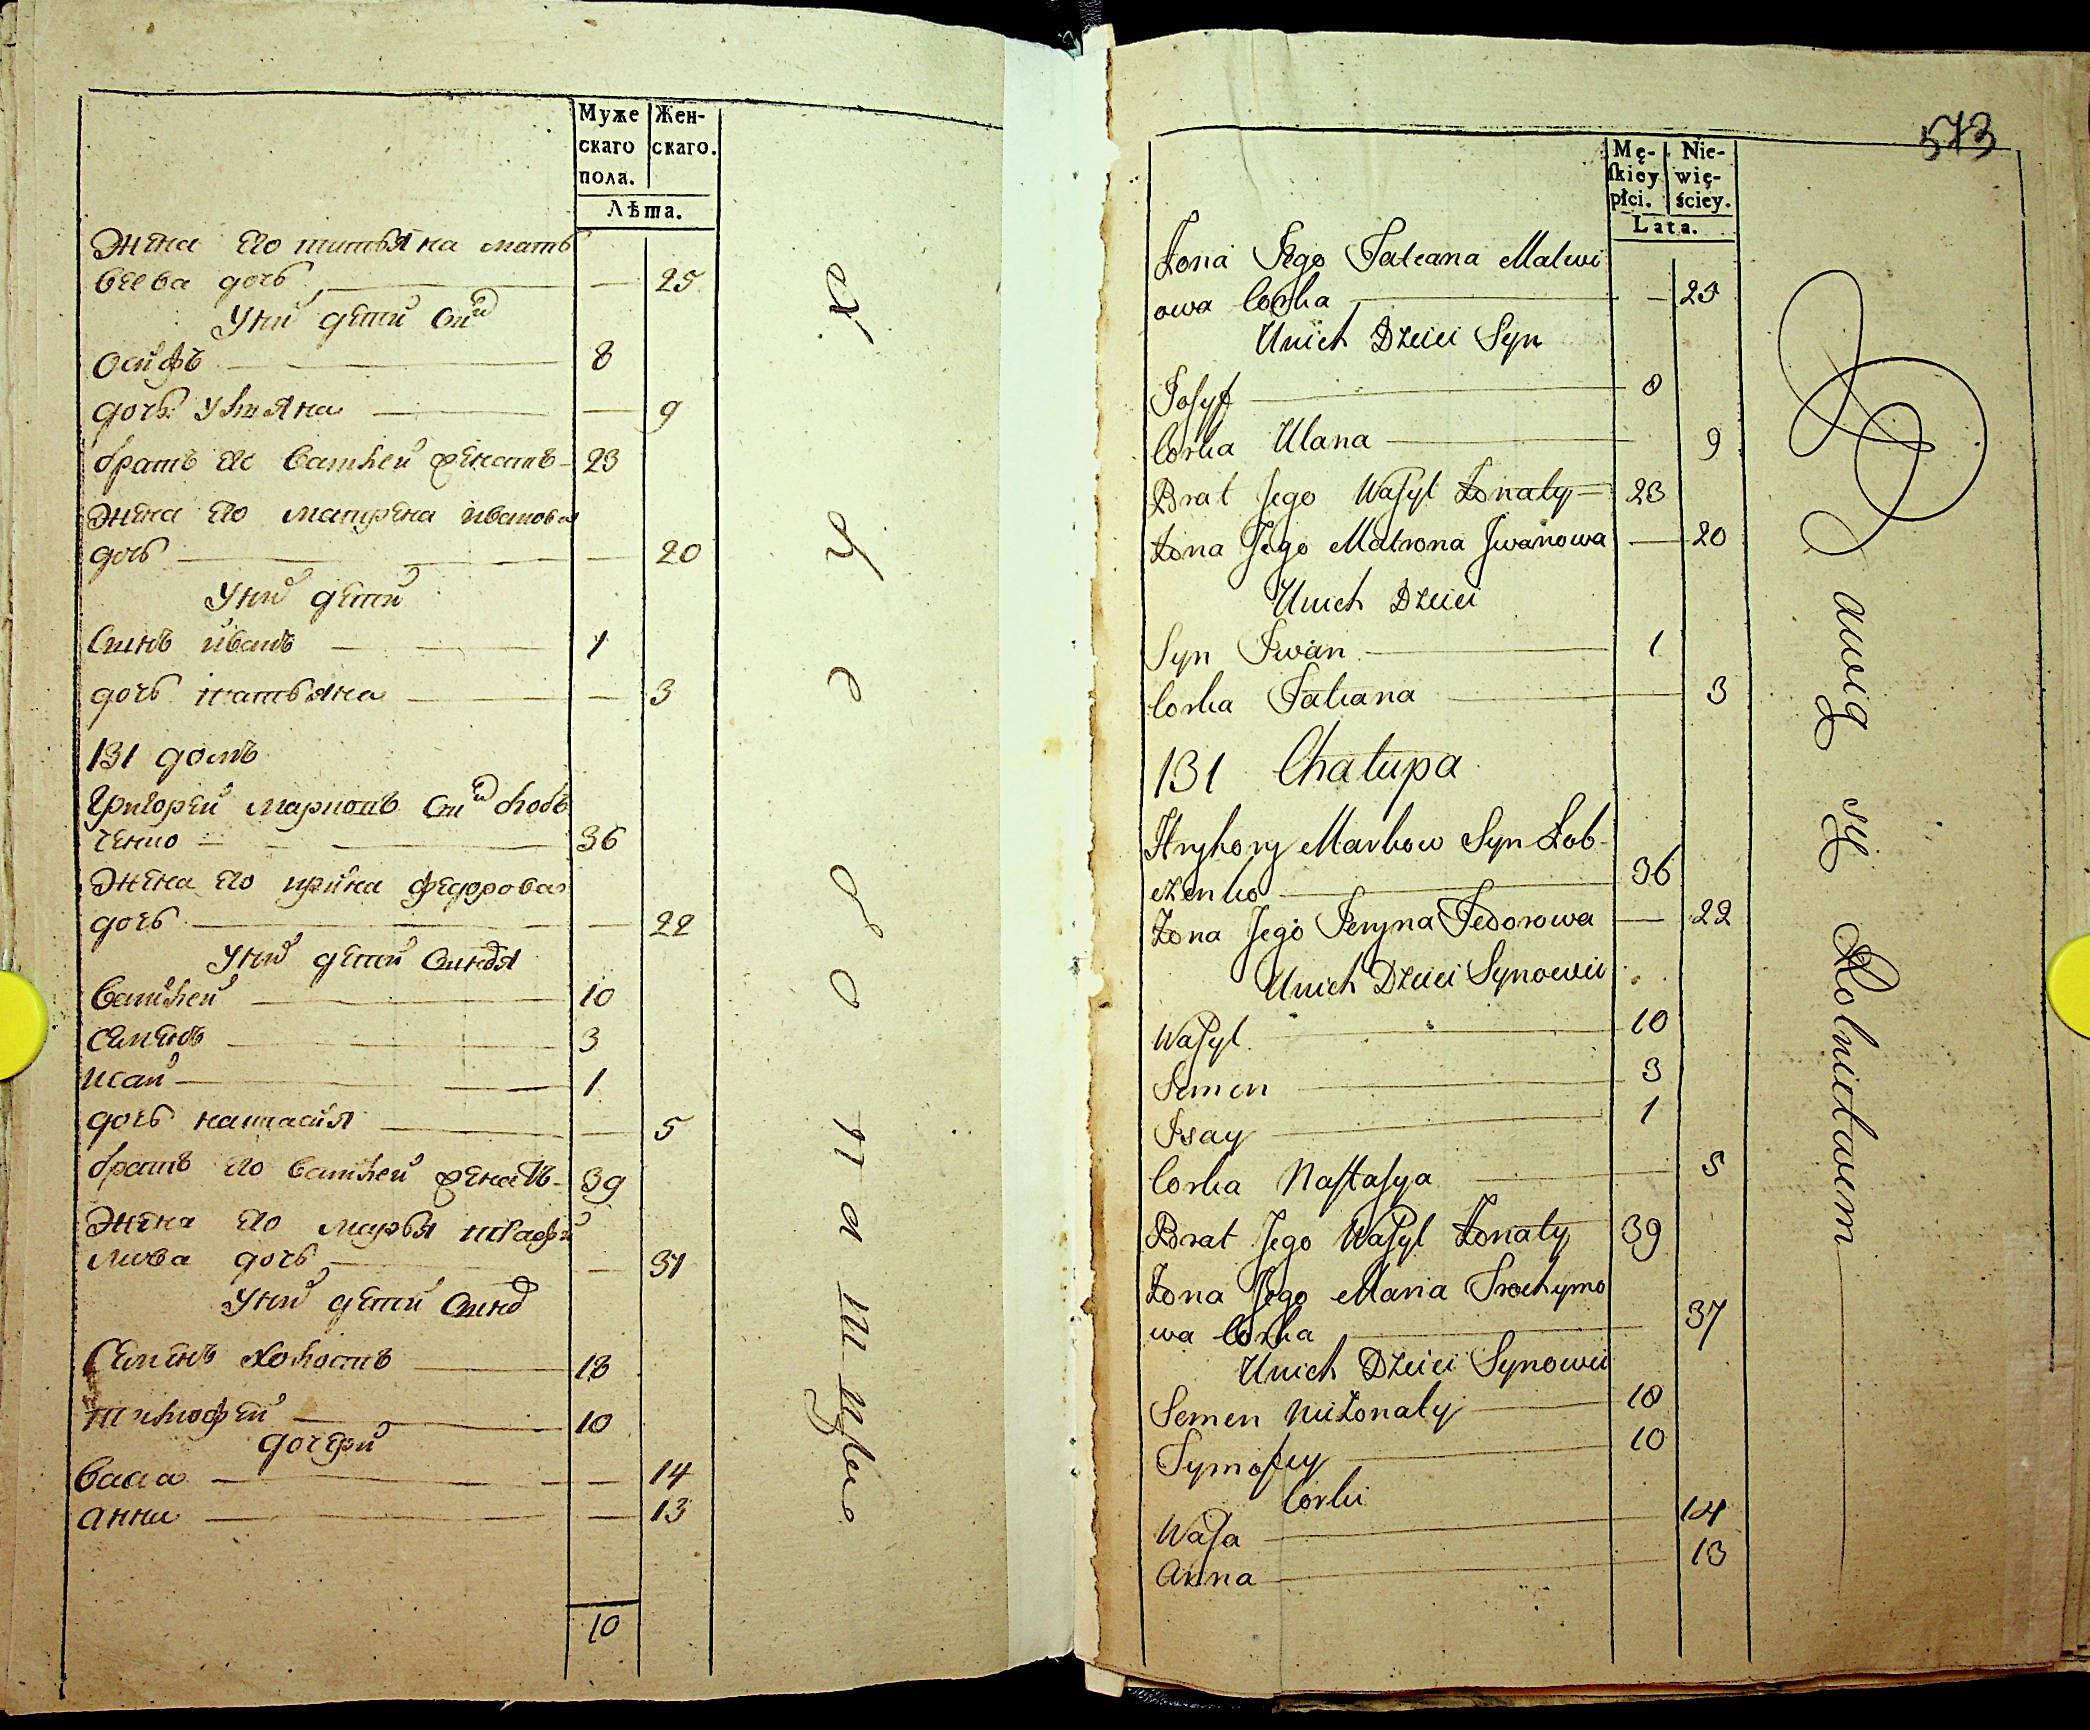 Муже
скаго
пола.
Жен-
скаго.
Лѣта.
Жена его татьяна мать
веева дочь 25
У них дети син
Осифъ 8
дочь Ульяна 9
братъ его василей женатъ 23
Жена его матрена иванова
дочь 20
У них дети
Синъ иванъ 1
дочь татьяна 3
131 домъ
Григорей марковъ син лоб
ченко 36
Жена его ирина федорова
дочь 22
У них дети
василей 10
семенъ 3
исай 1
дочь настасия 5
братъ его василей женатъ 39
Жена его марья трафи
мова дочь 37
У них дети
Семенъ холостъ 18
тимофей 10
дочери
васа 14
анна 13
10
573
Mę-
ſkiey
płci.
Nie-
wię-
ściey.
Lata.
Żona Jego Tateana Matwi
owa Corka 25
Unich Dzieci Syn
Josyf 8
Corka Ulana 9
Brat Jego Waſyl Żonaty 23
Żona Jego Matrona Jwanowa 20
Unich Dzieci
Syn Iwan 1
Corka Tatiana 3
131 Chałupa
Hryhory Markow Syn Łob-
czenko 36
Żona Jego Jeryna Fedorowa 22
Unich Dzieci Synowie
Waſyl 10
Semen 3
Isay 1
Corka Naſtaſya 5
Brat Jego Waſyl Żonaty 39
Żona Jego Maria Trochymo
wa Corka 37
Unich Dzieci Synowie
Semen nieżonaty 18
Tymofiey 10
Corki
Waſa 14
Anna 13
Bawią się Rolnictwem